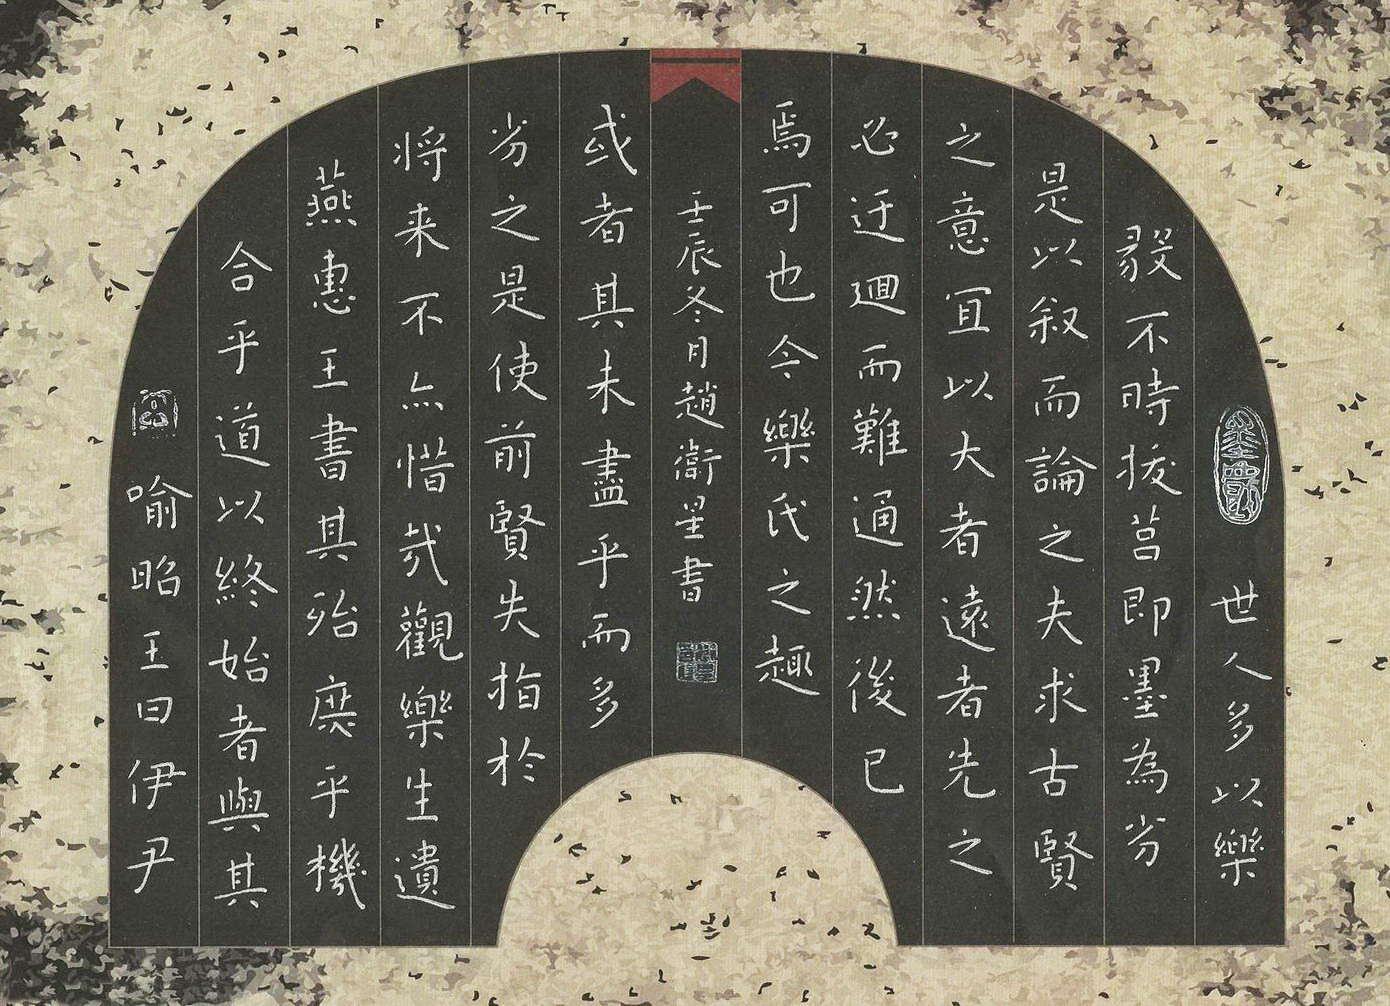 世人多以樂
毅不時拔莒即墨為劣
是以叙而論之夫求古賢
之意宜以大者遠者先之
必迂迴而難通然後已
焉可也今樂氏之趣
或者其未盡乎而多
劣之是使前賢失指於
将来不亦惜哉觀樂生遺
燕惠王書其殆庶乎機
合乎道以終始者與其
喻昭王曰伊尹
壬辰冬月趙衛星書